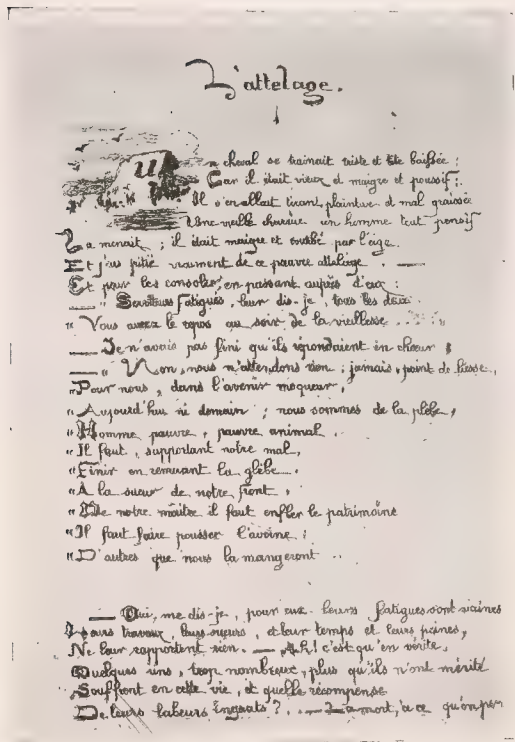 L'attelage.
Un cheval se trainait triste et tête baissée :
Car il était vieux et maigre et poussif ;
Il s'en allait tirant, plaintive et mal graissée
Une vieille charrue un homme tout pensif
La menait ; il était maigre et courbé par l'âge.
Et j'eus pitié vraiment de ce pauvre attelage . —
Et pour les consoler, en passant auprès d'eux :
— " Serviteurs fatigués, leur dis-je, tous les deux
" Vous aurez le repos au soir de la vieillesse .... "
— Je n'avais pas fini qu'ils répondaient en chœur ;
— " Non, nous n'attendons rien ; jamais, point de liesse,
" Pour nous, dans l'avenir moqueur,
" Aujourd'hui ni demain ; nous sommes de la plèbe,
" Homme pauvre, pauvre animal .
" Il faut, supportant notre mal,
" Finir en remuant la glèbe .
" À la sueur de notre front ,
" De notre maître il faut enfler le patrimoine
" Il faut faire pousser l'avoine ;
" D'autres que nous la mangeront ..
— Oui, me dis-je, pour eux leurs fatigues sont vaines
Leurs travaux, leurs sueurs, et leur temps et leurs peines,
Ne leur rapportent rien . — Ah! c'est qu'en vérité,
Quelques uns, trop nombreux, plus qu'ils n'ont mérité
Souffrent en cette vie, et quelle récompense
De leurs labeurs ingrats ? . — La mort, à ce qu'on pen